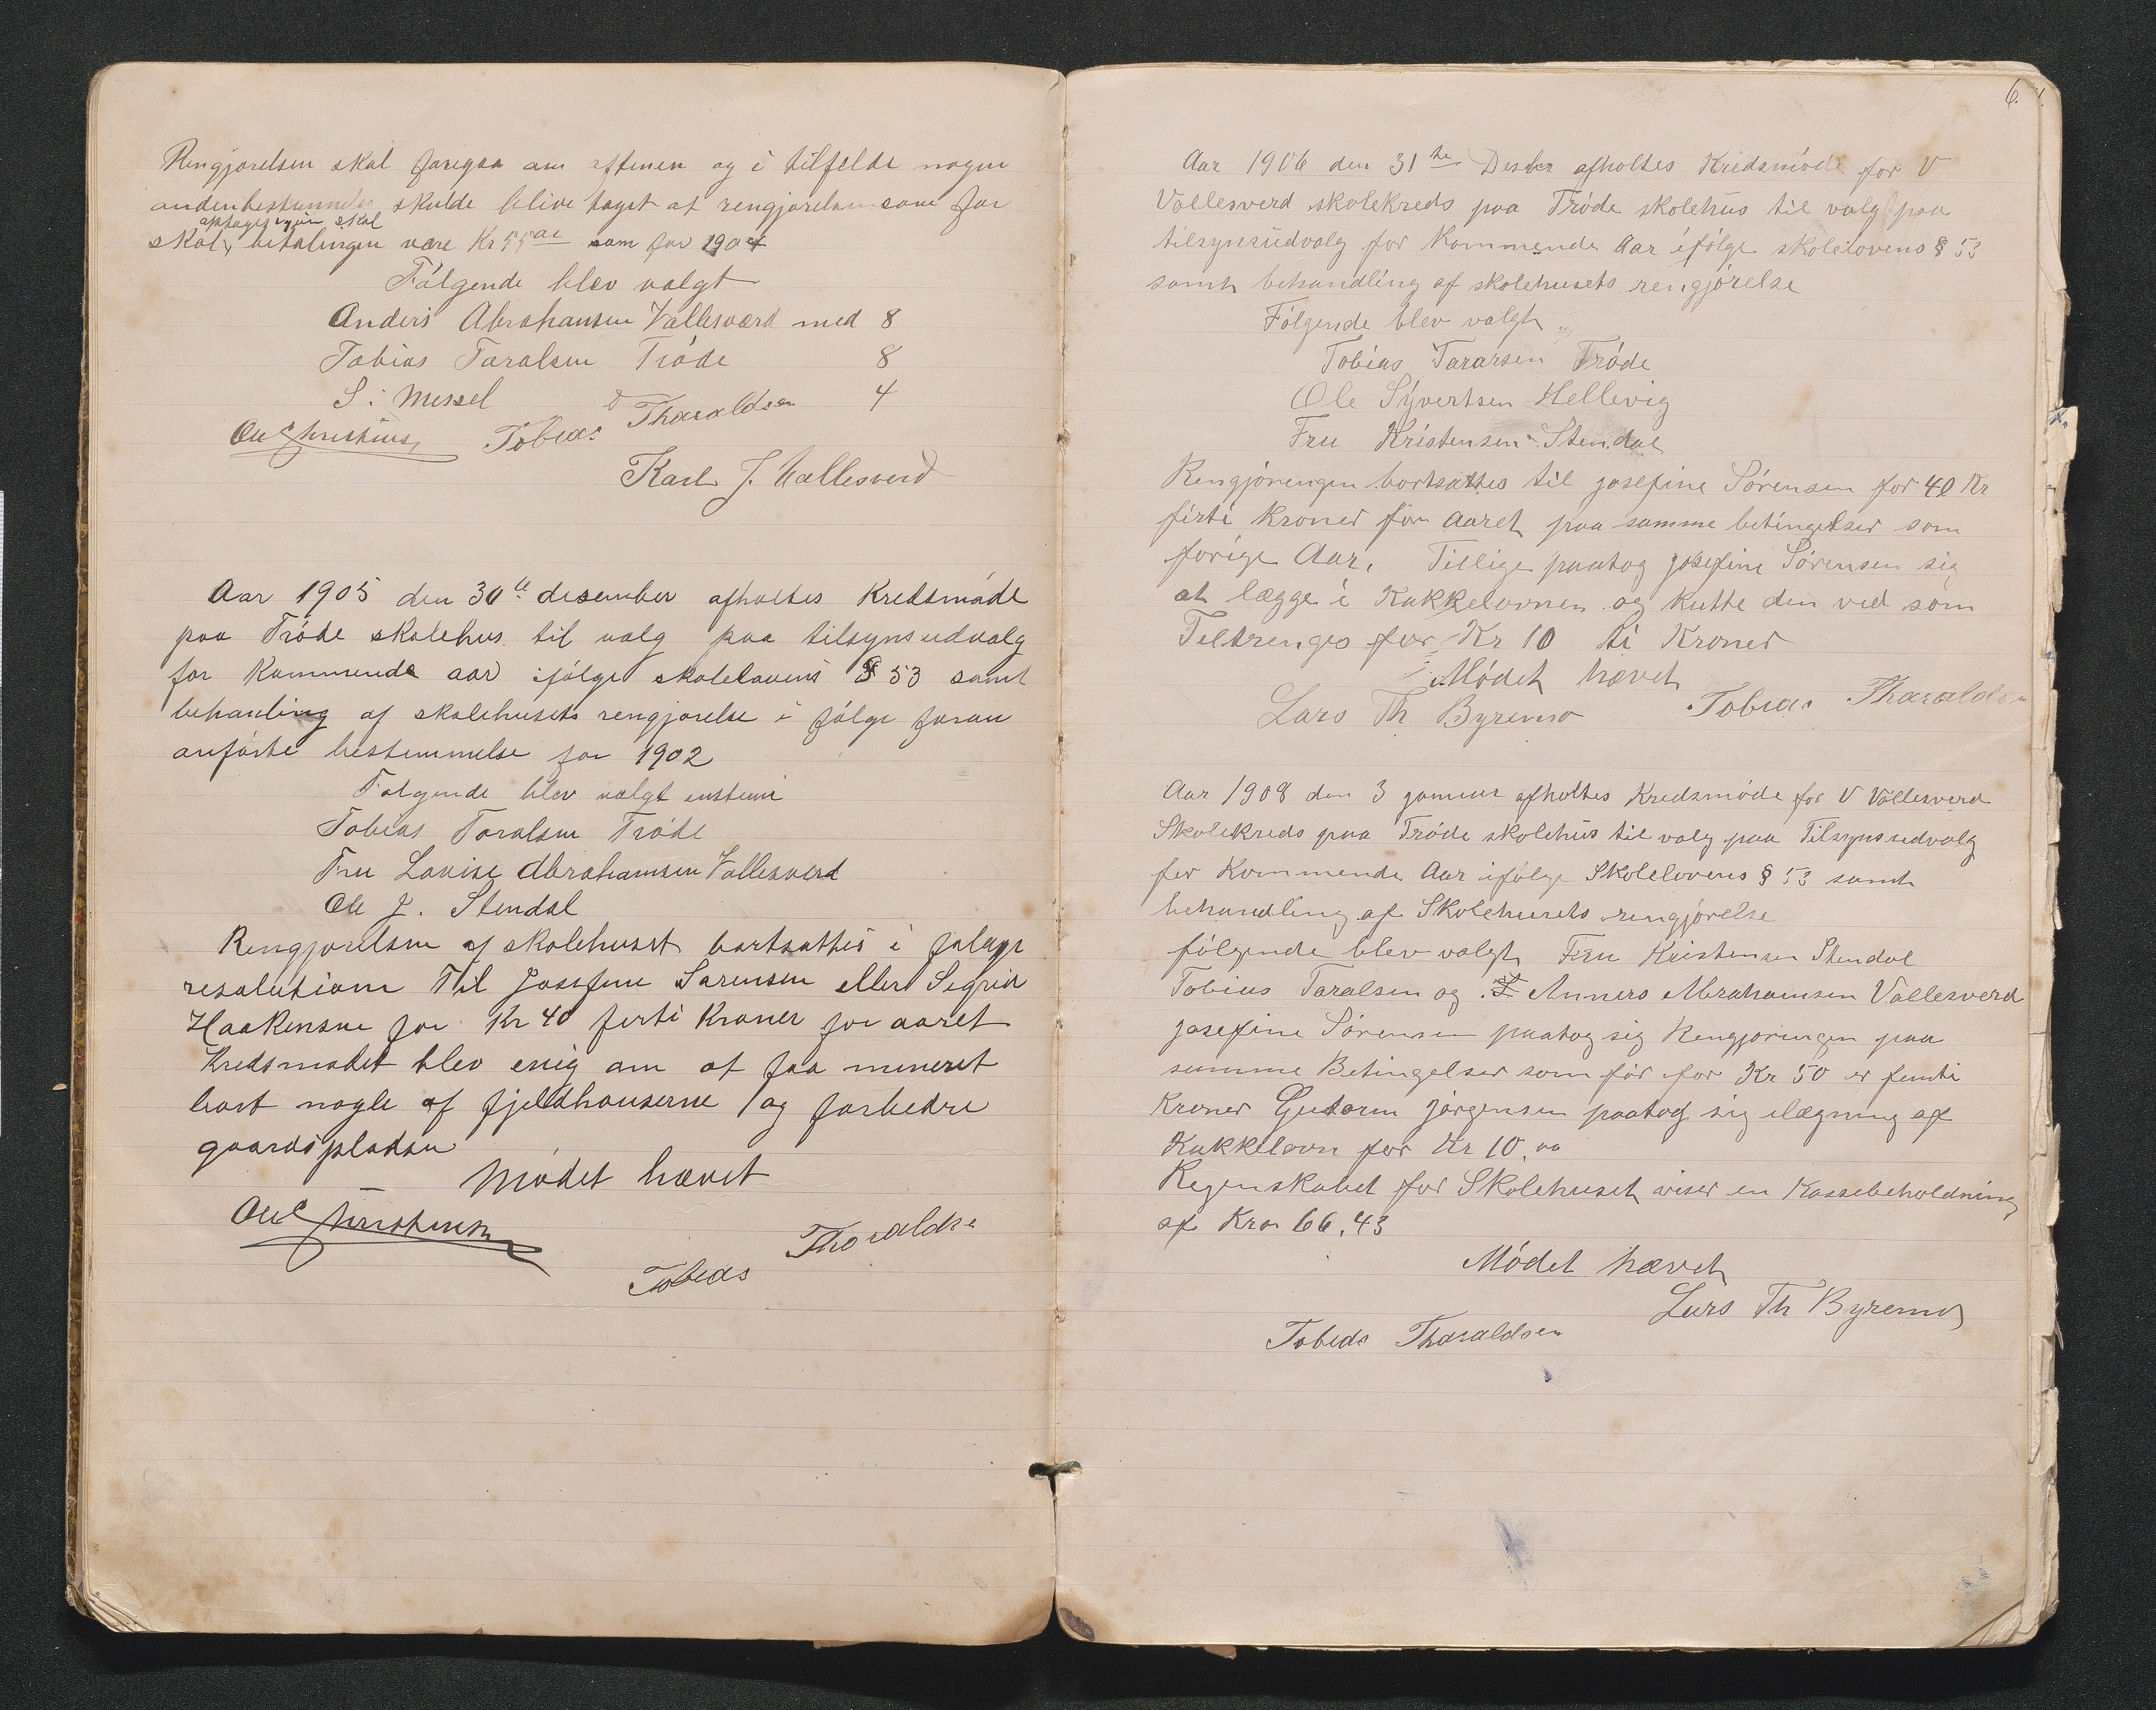 Rengjorelsen skal foregaa om aftenen og i tilfelde nogen
anden bestemmelse skulde blive taget at rengjorelsen som for
optages igjen skal
skal betalingen være Kr 55 som for 1904
Følgende blev valgt
Anders Abrahamsen Vallesværd med 8
Tobias Taralsen Tróde 8
S. Messel 4
Ole Christensen Tobias Tharaldsen
Karl J. Vallesverd
Aar 1905 den 30te desember afholtes Kredsmóde
paa Tróde skolehus til valg paa tilsynsudvalg
for Kommende aar ifólge skolelovens § 53 samt
behanling af skolehusets rengjorelse i fólge foran
anfórte bestemmelse for 1902
Folgende blev valgt enstemi
Tobias Taralsen Tróde
Fru Lovise Abrahamsen Vallesverd
Ole J. Stendal
Rengjorelsen af skolehuset bortsattes i folge
resolution Til Josefine Sorensen eller Sigrid
Haakensen for Kr 40 firti Kroner for aaret
Kredsmodet blev enig om at faa mineret
bort nogle af fjeldhauserne og forbedre
gaardspladsen
Módet hævet
Ole Christensen
Tobias Tharaldsen
6.
Aar 1906 den 31te Desbr afholtes Kredsmóde for V
Vollesverd skolekreds paa Tróde skolehus til valg paa
tilsynsudvalg for Kommende Aar ifólge skolelovens § 53
samt behandling af skolehusets rengjórelse
Fólgende blev valgt
Tobias Tararsen Tróde
Ole Syvertsen Hellevig
Fru Kristensen Stendal
Rengjóringen bortsattes til josefine Sórensen for 40 Kr
firti Kroner for Aaret paa samme betingelser som
forige Aar. Tillige paatog josefine Sórensen sig
at lægge i Kakkelovnen og kutte den ved som
Teltrenges for Kr 10 ti Kroner
Módet hævet
Lars Th Byremo Tobias Tharaldsen
Aar 1908 den 3 januar afholtes Kredsmóde for V Vollesverd
Skolekreds paa Tróde skolehus til valg paa Tilsynsudvalg
for Kommende Aar ifólge Skolelovens § 53 samt
behandling af Skolehusets rengjórelse
fólgende blev valgt Fru Kristensen Stendal
Tobias Taralsen og Anners Abrahamsen Vallesverd
josefine Sórensen paatog sig Rengjoringen paa
samme Betingelser som fór for Kr 50 er femti
Kroner Gutorm jórgensen paatog sig ilægning af
Kakkelovn for Kr 10,00
Regenskabet for Skolehuset viser en Kassebeholdning
af Kro 66,43
Módet hævet
Lars Th Byremo
Tobias Tharaldsen